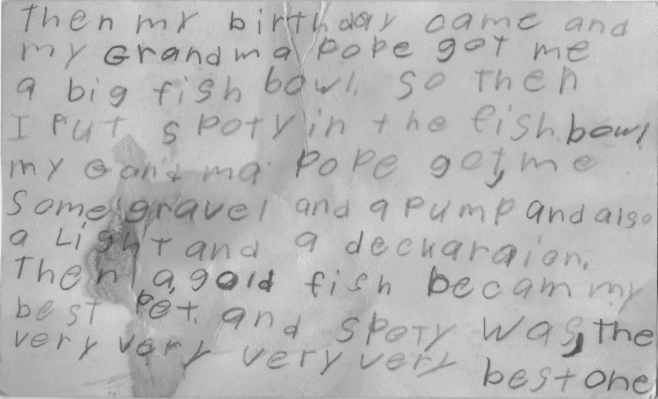 then my birthday came and
my Grandma Pope got me
a big fish bowl. so then
I put spoty in the fishbowl
my Gandma Pope got, me
some gravel and a pump and also
a Light and a decuaraion.
Then a gold fish becam my
best Pet. and spoty was, the
very very very very very best one